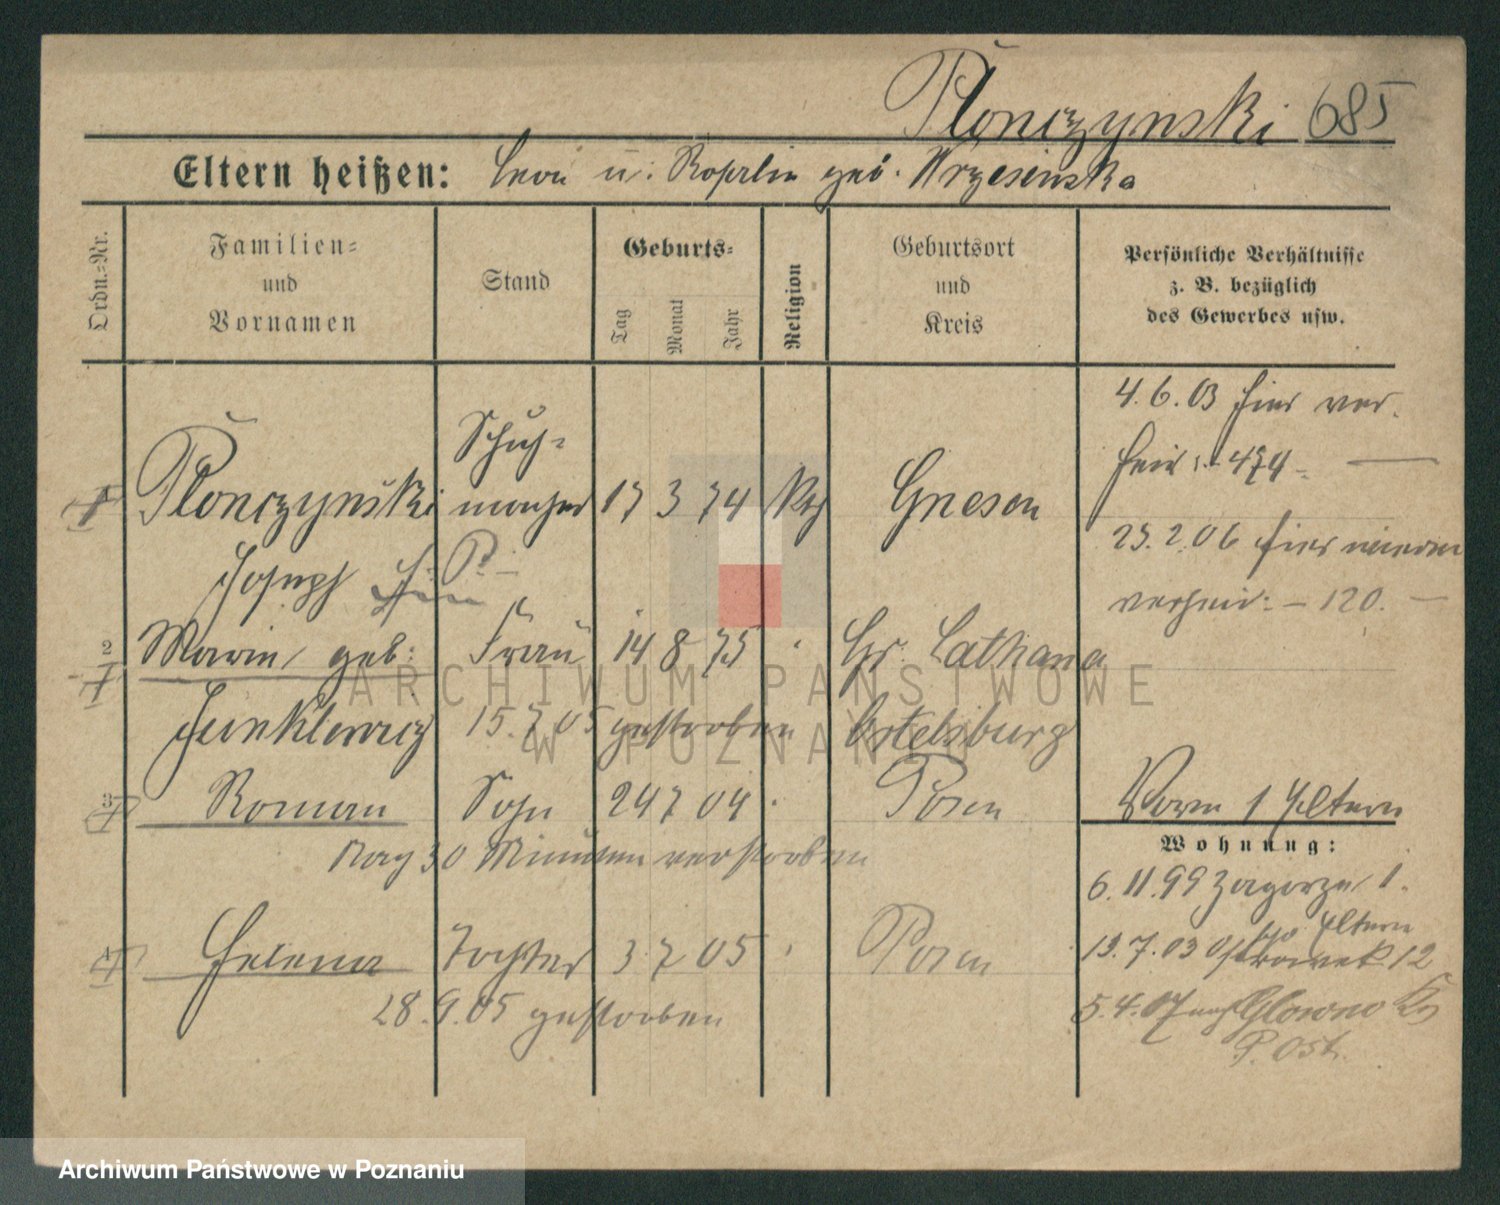 Płonczynski 685
Eltern heißen: Leon u. Rosalie geb. Wrzesinska
Ordn.=Nr.
Familien=
und
Vornamen
Stand
Geburts=
Tag
Monat
Jahr
Religion
Geburtsort
und
Kreis
Persönliche Verhältnisse
z. B. bezüglich
des Gewerbes usw.
4. 6. 03 hier ver-
heir: 474
Schuh-
1 Płonczyński macher 17 3 74 Kth Gnesen
25. 2. 06 hier wieder
Joseph
verheir: - 120. -
2 Marie, geb: Frau 14 8 75 Gr. Lathana
15. 7. 05 gestorben Ortelsburg
3 Roman Sohn 24 7 04 Posen
Nach 30 Minuten verstorben
Vorm 1 Eltern
Wohnung:
6. 11. 99 Zagorze 1.
bei Eltern
4 Helena Tochter 3 7 05 Posen
13. 7. 03 Ostrowek 12
28. 9. 05 gestorben
5. 4. 07 nach Glowno Krs
P. Ost.
ARCHIWUM PAŃSTWOWE
W POZNANIU
Archiwum Państwowe w Poznaniu